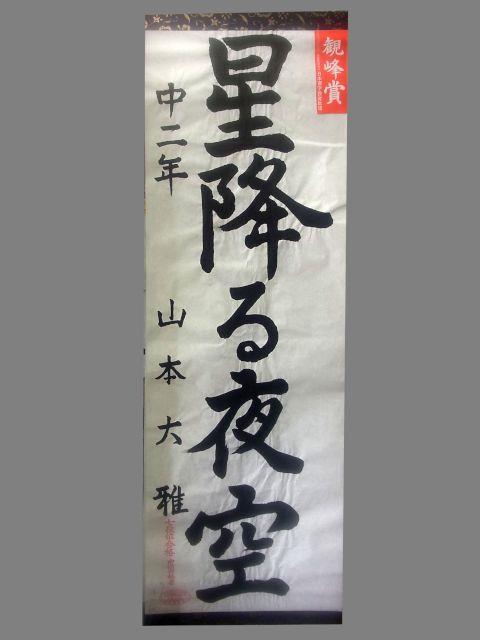 観峰賞
星降る夜空
中二年 山本大雅